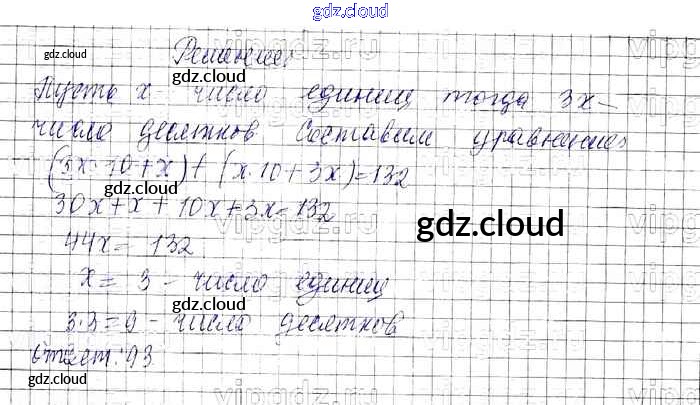 gdz.cloud
vipgdz.ru
Решение:
gdz.cloud
gdz.cloud
Пусть x - число единиц тогда 3x-
число десятков Составим уравнение:
gdz.cloud
(3x·10+x)+(x·10+3x)=132
gdz.cloud
30x+x+10x+3x=132
gdz.cloud
44x= 132
gdz.cloud
x= 3 - число единиц
gdz.cloud
3·3=9 - число десятков
Ответ: 93
gdz.cloud